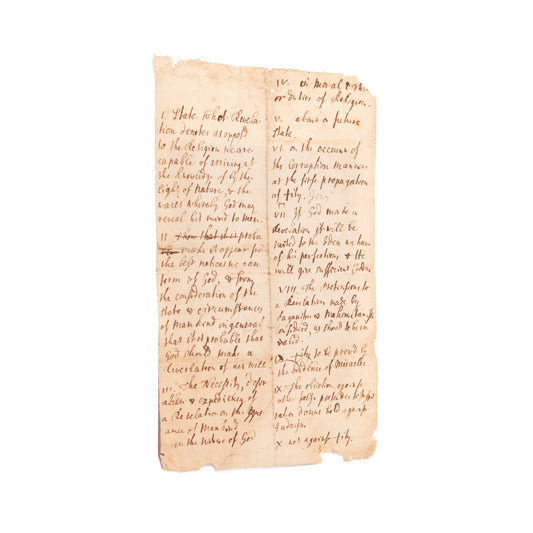 I. State what Revela
tion denotes as oppos'd
to the Religion we are
capable of arriving at
the knowledge of by the
light of nature, & the
ways whereby God may
reveal his mind to men.
II. show that it is proba
make it appear from
the best notions we can
form of God, & from
the consideration of the
State & circumstances
of Mankind in general
that it is probable that
God should make a
Revelation of his will
III. The Necessity,
& expediency of
a Revelation on the
ance of Mankind
in the nature of God
IV. in moral
or duties of Religion.
V. about a future
State.
VI. on the account of
the Corruption manners
at the first propagation
of
VII If God make a
Revelation it will be
suited to the Ideas we have
of his perfections & He
will give sufficient
VIII. The Pretensions to
a Revelation made by
Paganism & Mahometanism
consider'd, & shewd to be in
valid.
IX. to be prov'd by
the Evidence of Miracles.
X The objection against
other false
down hold against
Judaism
X not against